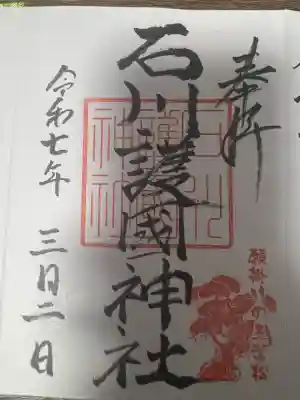 奉拝
石川護國神社
令和七年 三月二日